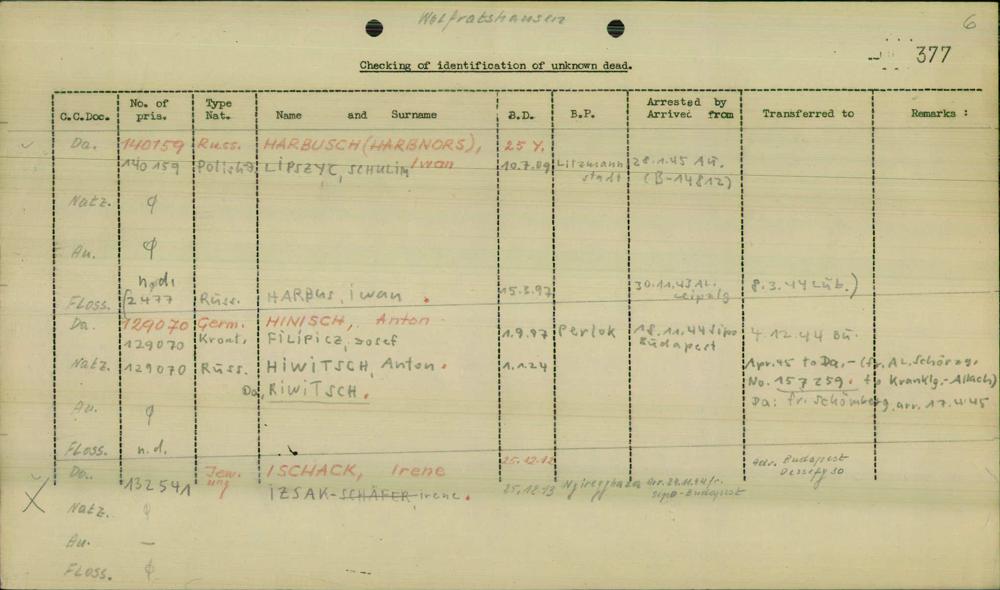 Wolfratshausen
6
377
Checking of identification of unknown dead.
C.C.Doc. No. of pris. Type Nat. Name and Surname B.D. B.P. Arrested by Arrived from Transferred to Remarks :
Da. 140159 Russ. HARBUSCH (HARBNORS), Iwan 25 Y.
140 159 Polish J. LIPSZYC, SCHULIM 10.7.09 Litzmann stadt 28.1.45 Au. (B-14812)
Natz. ϕ
Au. ϕ
Floss. n.d. (2477 Russ. HARBUS, iwan. 15.3.97 30.11.43 AL. Leipzig 8.3.44 Lüb.)
Da. 129070 Germ. HINISCH, Anton
129070 Kroat. FILIPICZ, Josef 1.9.97 Perlok 18.11.44 Sipo Budapest 4.12.44 Bu.
Natz. 129070 Russ. HIWITSCH, Anton. 1.1.24 Apr. 45 to Da.- (fr. AL. Schörzg.
Da. RIWITSCH. No. 157259. to Kranklg.-Allach)
Au. ϕ Da: fr. Schömberg, arr. 17.4.45
Floss. n.d.
Da. Jew. ung ISCHACK, Irene 25.12.12 adr. Budapest
132541 IZSAK-SCHÄFER, irene. 25.12.13 arr. 24.11.44 fr. Sipo-Budapest
X
Natz. ϕ
Au. —
Floss. ϕ